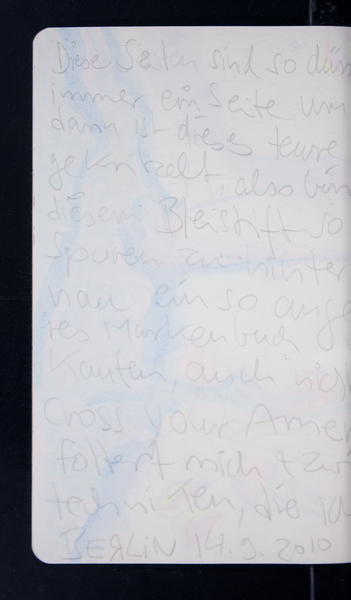 Diese Seiten sind so dün
immer ein Seite um
dann ist dieses teure
gekritzelt, also bin
diesem Bleistift so
Spuren zu hinter
man ein so ange
res Markenbuch
Kaufen, auch nich
Cross your Amer
foltert mich + zwi
techniken, die ich
BERLiN 14.9.2010